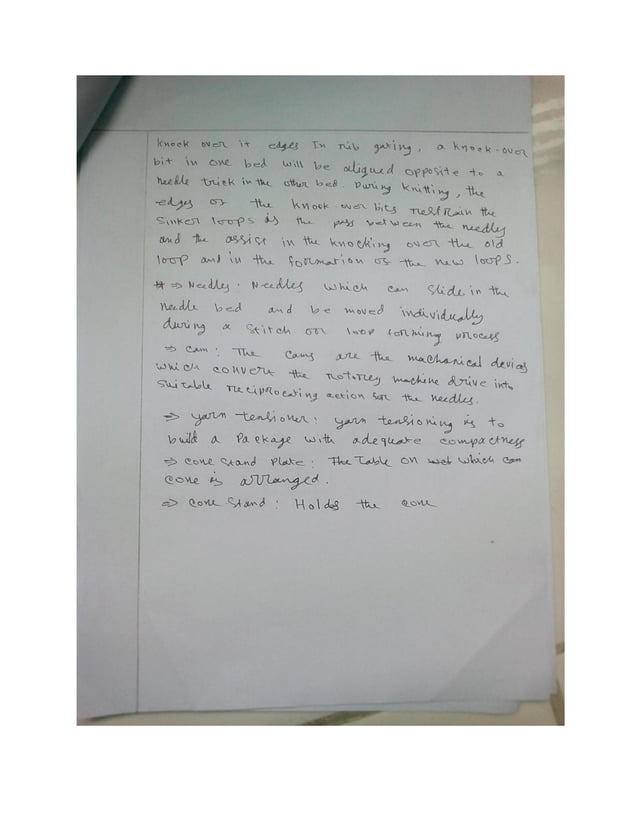 knock over it edges In rib gating, a knock-over
bit in one bed will be aligned opposite to a
needle trick in the other bed. During knitting, the
edges of the knock over bits restrain the
Sinker loops as the pass between the needles
and the assist in the knocking over the old
loop and in the formation of the new loops.
⇒ Needles. Needles which can slide in the
needle bed and be moved individually
during a stitch or loop forming process
⇒ cam: The cams are the machanical devices
which convert the rotorey machine drive into
suitable reciprocating action for the needles.
⇒ yarn tensioner: yarn tensioning is to
build a Package with adequate compactness
⇒ cone stand plate: The Table on which
cone is arranged.
⇒ cone stand: Holds the cone